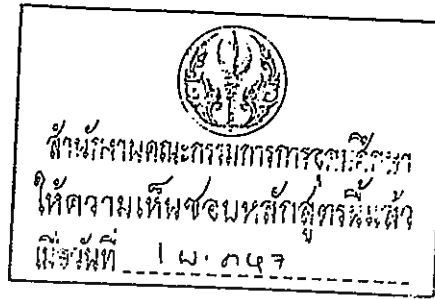 สำนักงานคณะกรรมการการอุดมศึกษา
ให้ความเห็นชอบหลักสูตรนี้แล้ว
เมื่อวันที่ 1